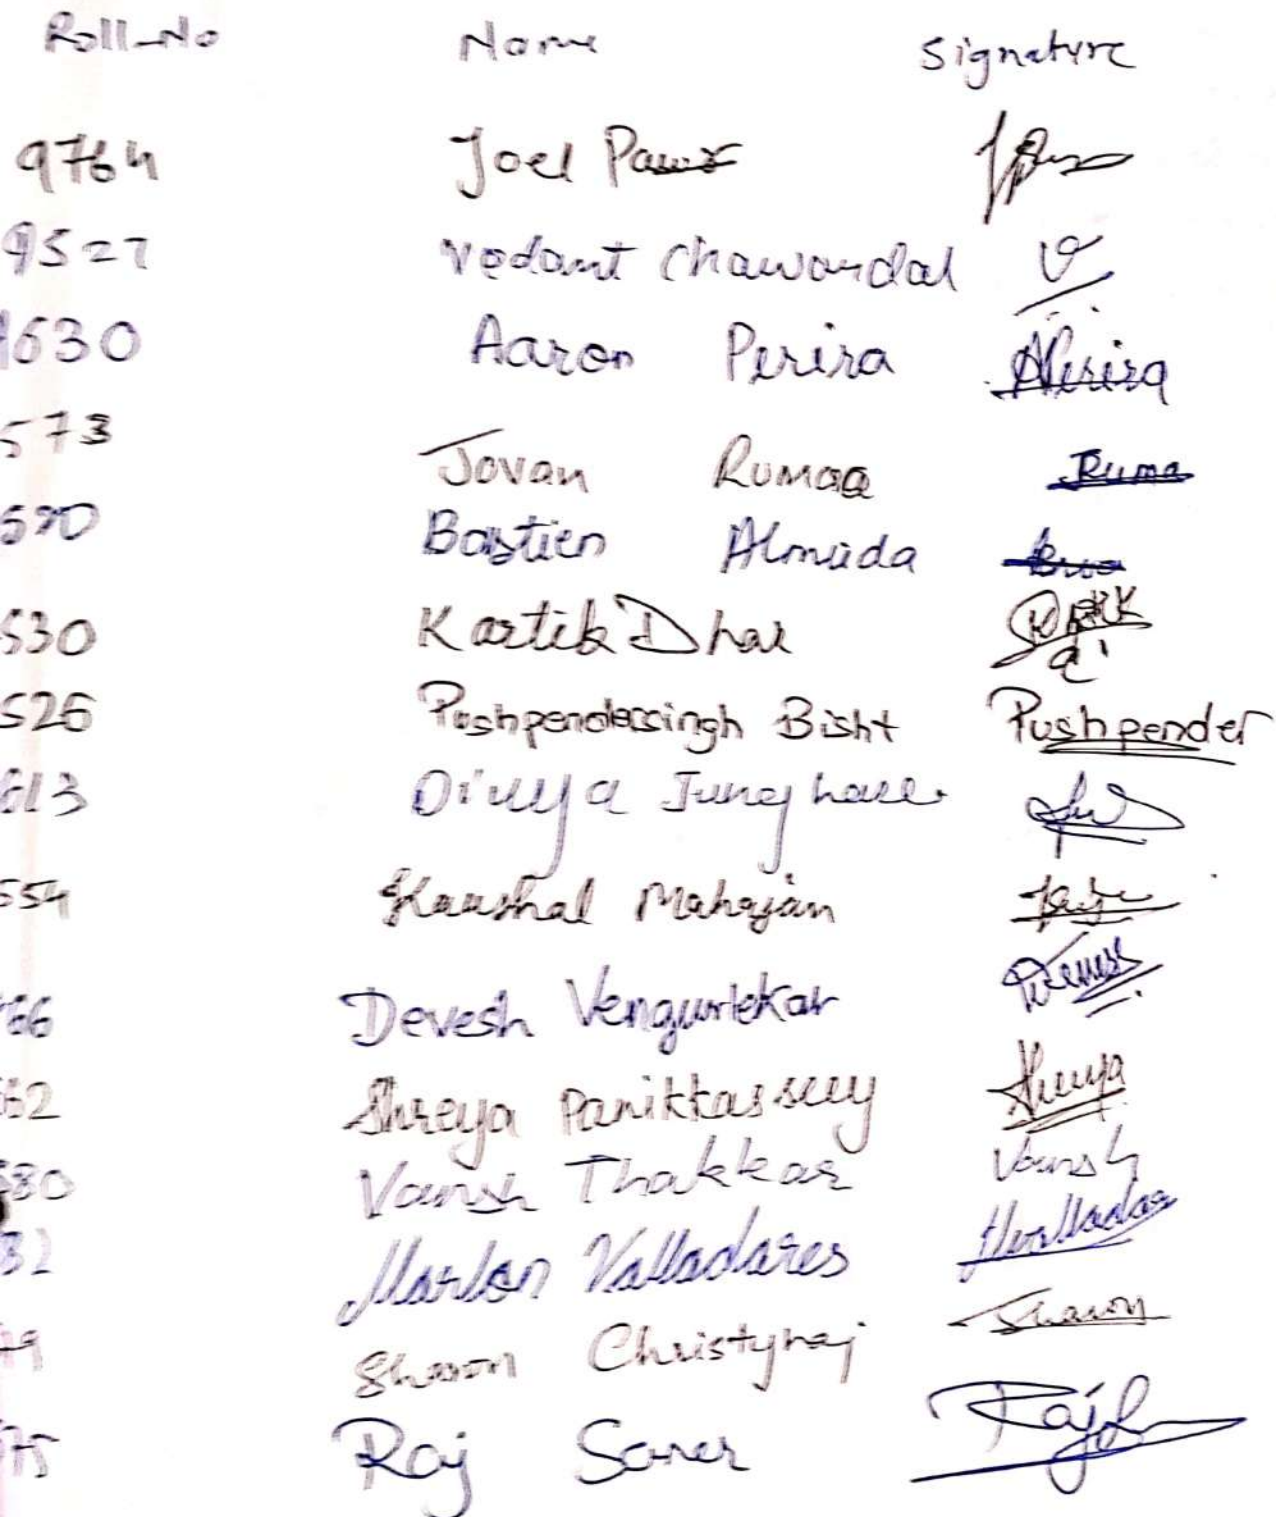 Roll-No Name Signature
9764 Joel Pawar
9527 Vedant Chawandal
1630 Aaron Perira APerira
573 Jovan Rumao JRuma
590 Bastien Almida
530 Kartik Dhar
526 Pushpendersingh Bisht Pushpender
613 Divya Junghare
554 Kaushal Mahajan
66 Devesh Vengurlekar
62 Shreya Panikkassery Shreya
680 Vansh Thakkar Vansh
32 Marlon Valladares MValladares
49 Sharon Christyraj Sharon
75 Raj Saner Raj